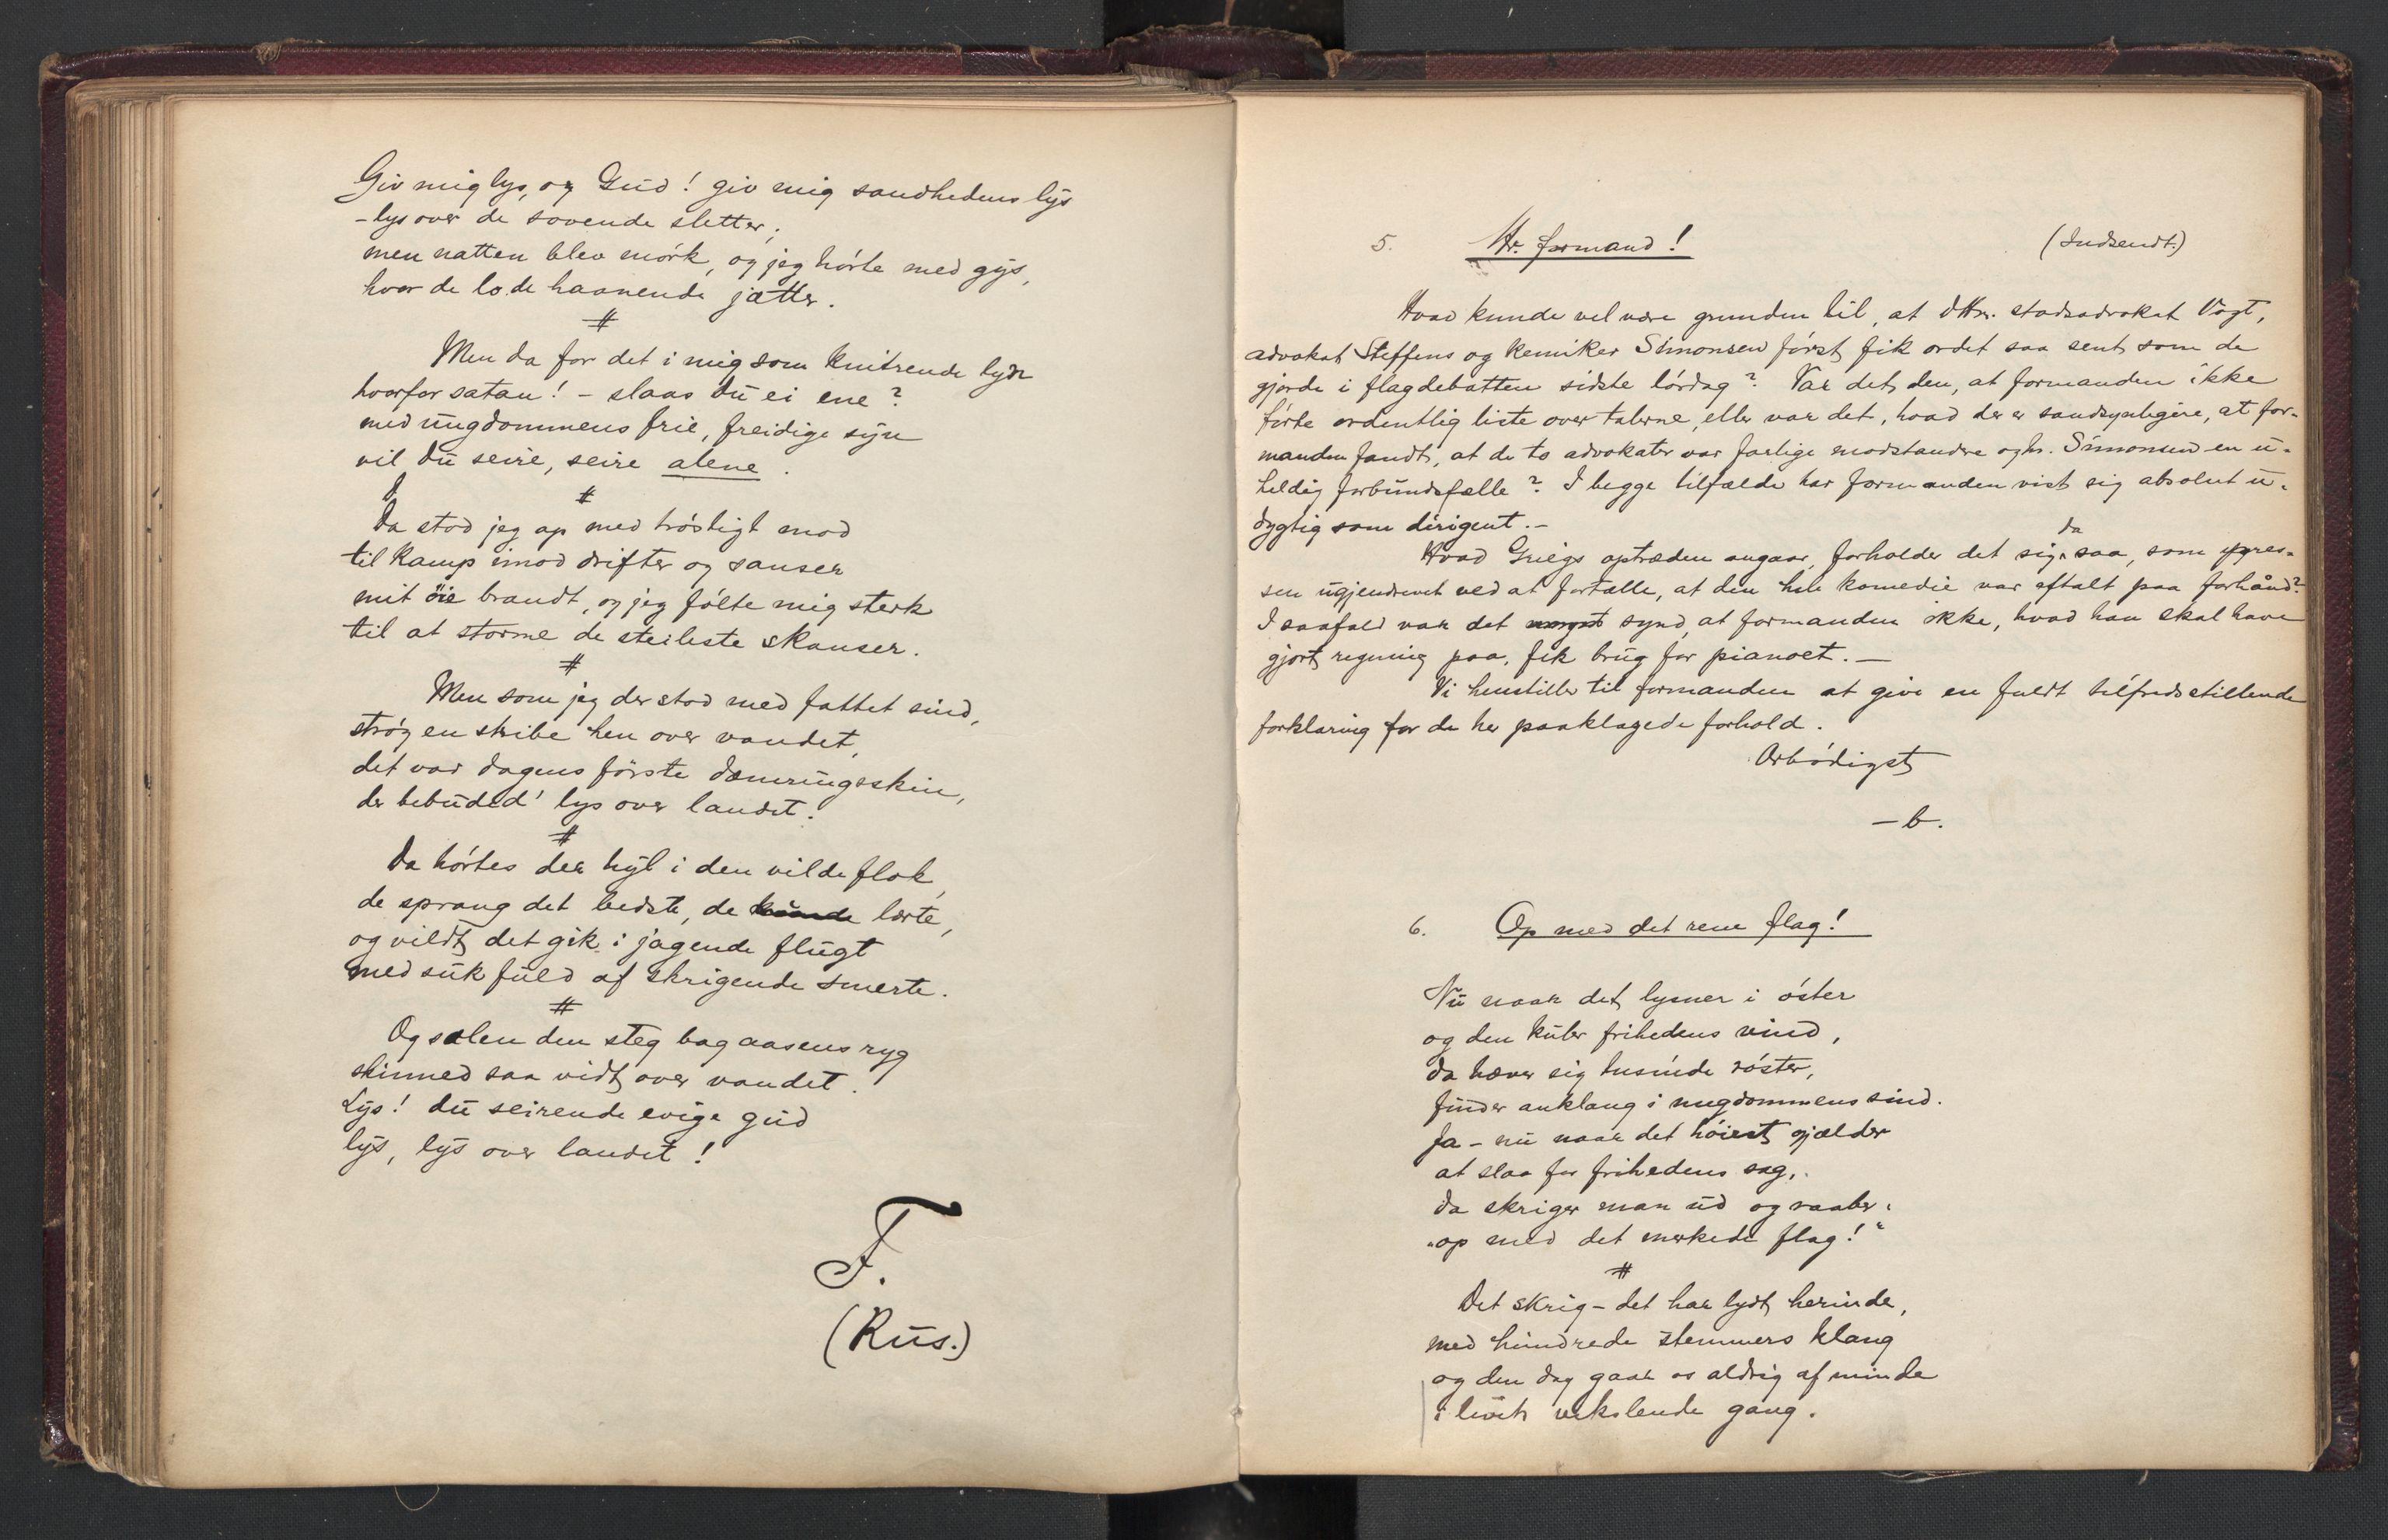 Giv mig lys, og Gud! giv mig sandhedens lys
- lys over de sovende sletter;
men natten blev mörk, og jeg hörte med gys,
hvor de lo de haanende jætter.
#
Men da for det i mig som knitrende lyn
hvorfor satan! - slaas du ei ene?
med ungdommens frie, freidige syn
vil du seire, seire alene.
#
Da stod jeg op med tröstigt mod
til kamp imod drifter og sanser
mit öie brandt, og jeg fölte mig sterk
til at storme de steileste skanser.
#
Men som jeg der stod med fattet sind,
strög en stribe hen over vandet,
det var dagens förste dæmringsskin,
der bebuded' lys over landet.
#
Da hörtes der hyl i den vilde flok,
de sprang det bedste, de kunde lærte,
og vildt det gik i jagende flugt
med suk fuld af skrigende smerte.
#
Og solen den steg bag aasens ryg
skinned saa vidt over vandet.
Lys! du seirende evige gud
lys, lys over landet!
F.
(Rus.)
5. Hr. formand! (Indsendt.)
Hvad kunde vel være grunden til, at dHrr. stadsadvokat Vogt,
advokat Steffens og kemiker Simonsen först fik ordet saa sent som de
gjorde i flagdebatten sidste lördag? Var det den, at formanden ikke
förte ordentlig liste over talerne, eller var det, hvad der er sandsynligere, at for-
manden fandt, at de to advokater var farlige modstandere og hr. Simonsen en u-
heldig forbundsfælle? I begge tilfælde har formanden vist sig absolut u-
dygtig som dirigent. -
Hvad Griegs optræden angaar, forholder det sig da saa, som pres-
sen ugjendrevet ved at fortælle, at den hele komedie var aftalt paa forhånd?
I saafald var det synd, at formanden ikke, hvad han skal have
gjort regning paa, fik brug for pianoet. -
Vi henstiller til formanden at give en fuldt tilfredsstillende
forklaring for de her paaklagede forhold.
Ærbödigst
- b.
6. Op med det rene flag!
Nu naar det lysner i öster
og den kuler frihedens vind,
da hæver sig tusinde röster,
finder anklang i ungdommens sind.
Ja - nu naar det höiest gjælder
at slaa for frihedens sag,
da skriger man ud og raaber:
"op med det merkede flag!"
#
Det skrig - det har lydt herinde,
med hundrede stemmers klang
og den dag gaar os aldrig af minde
i livets vekslende gang.